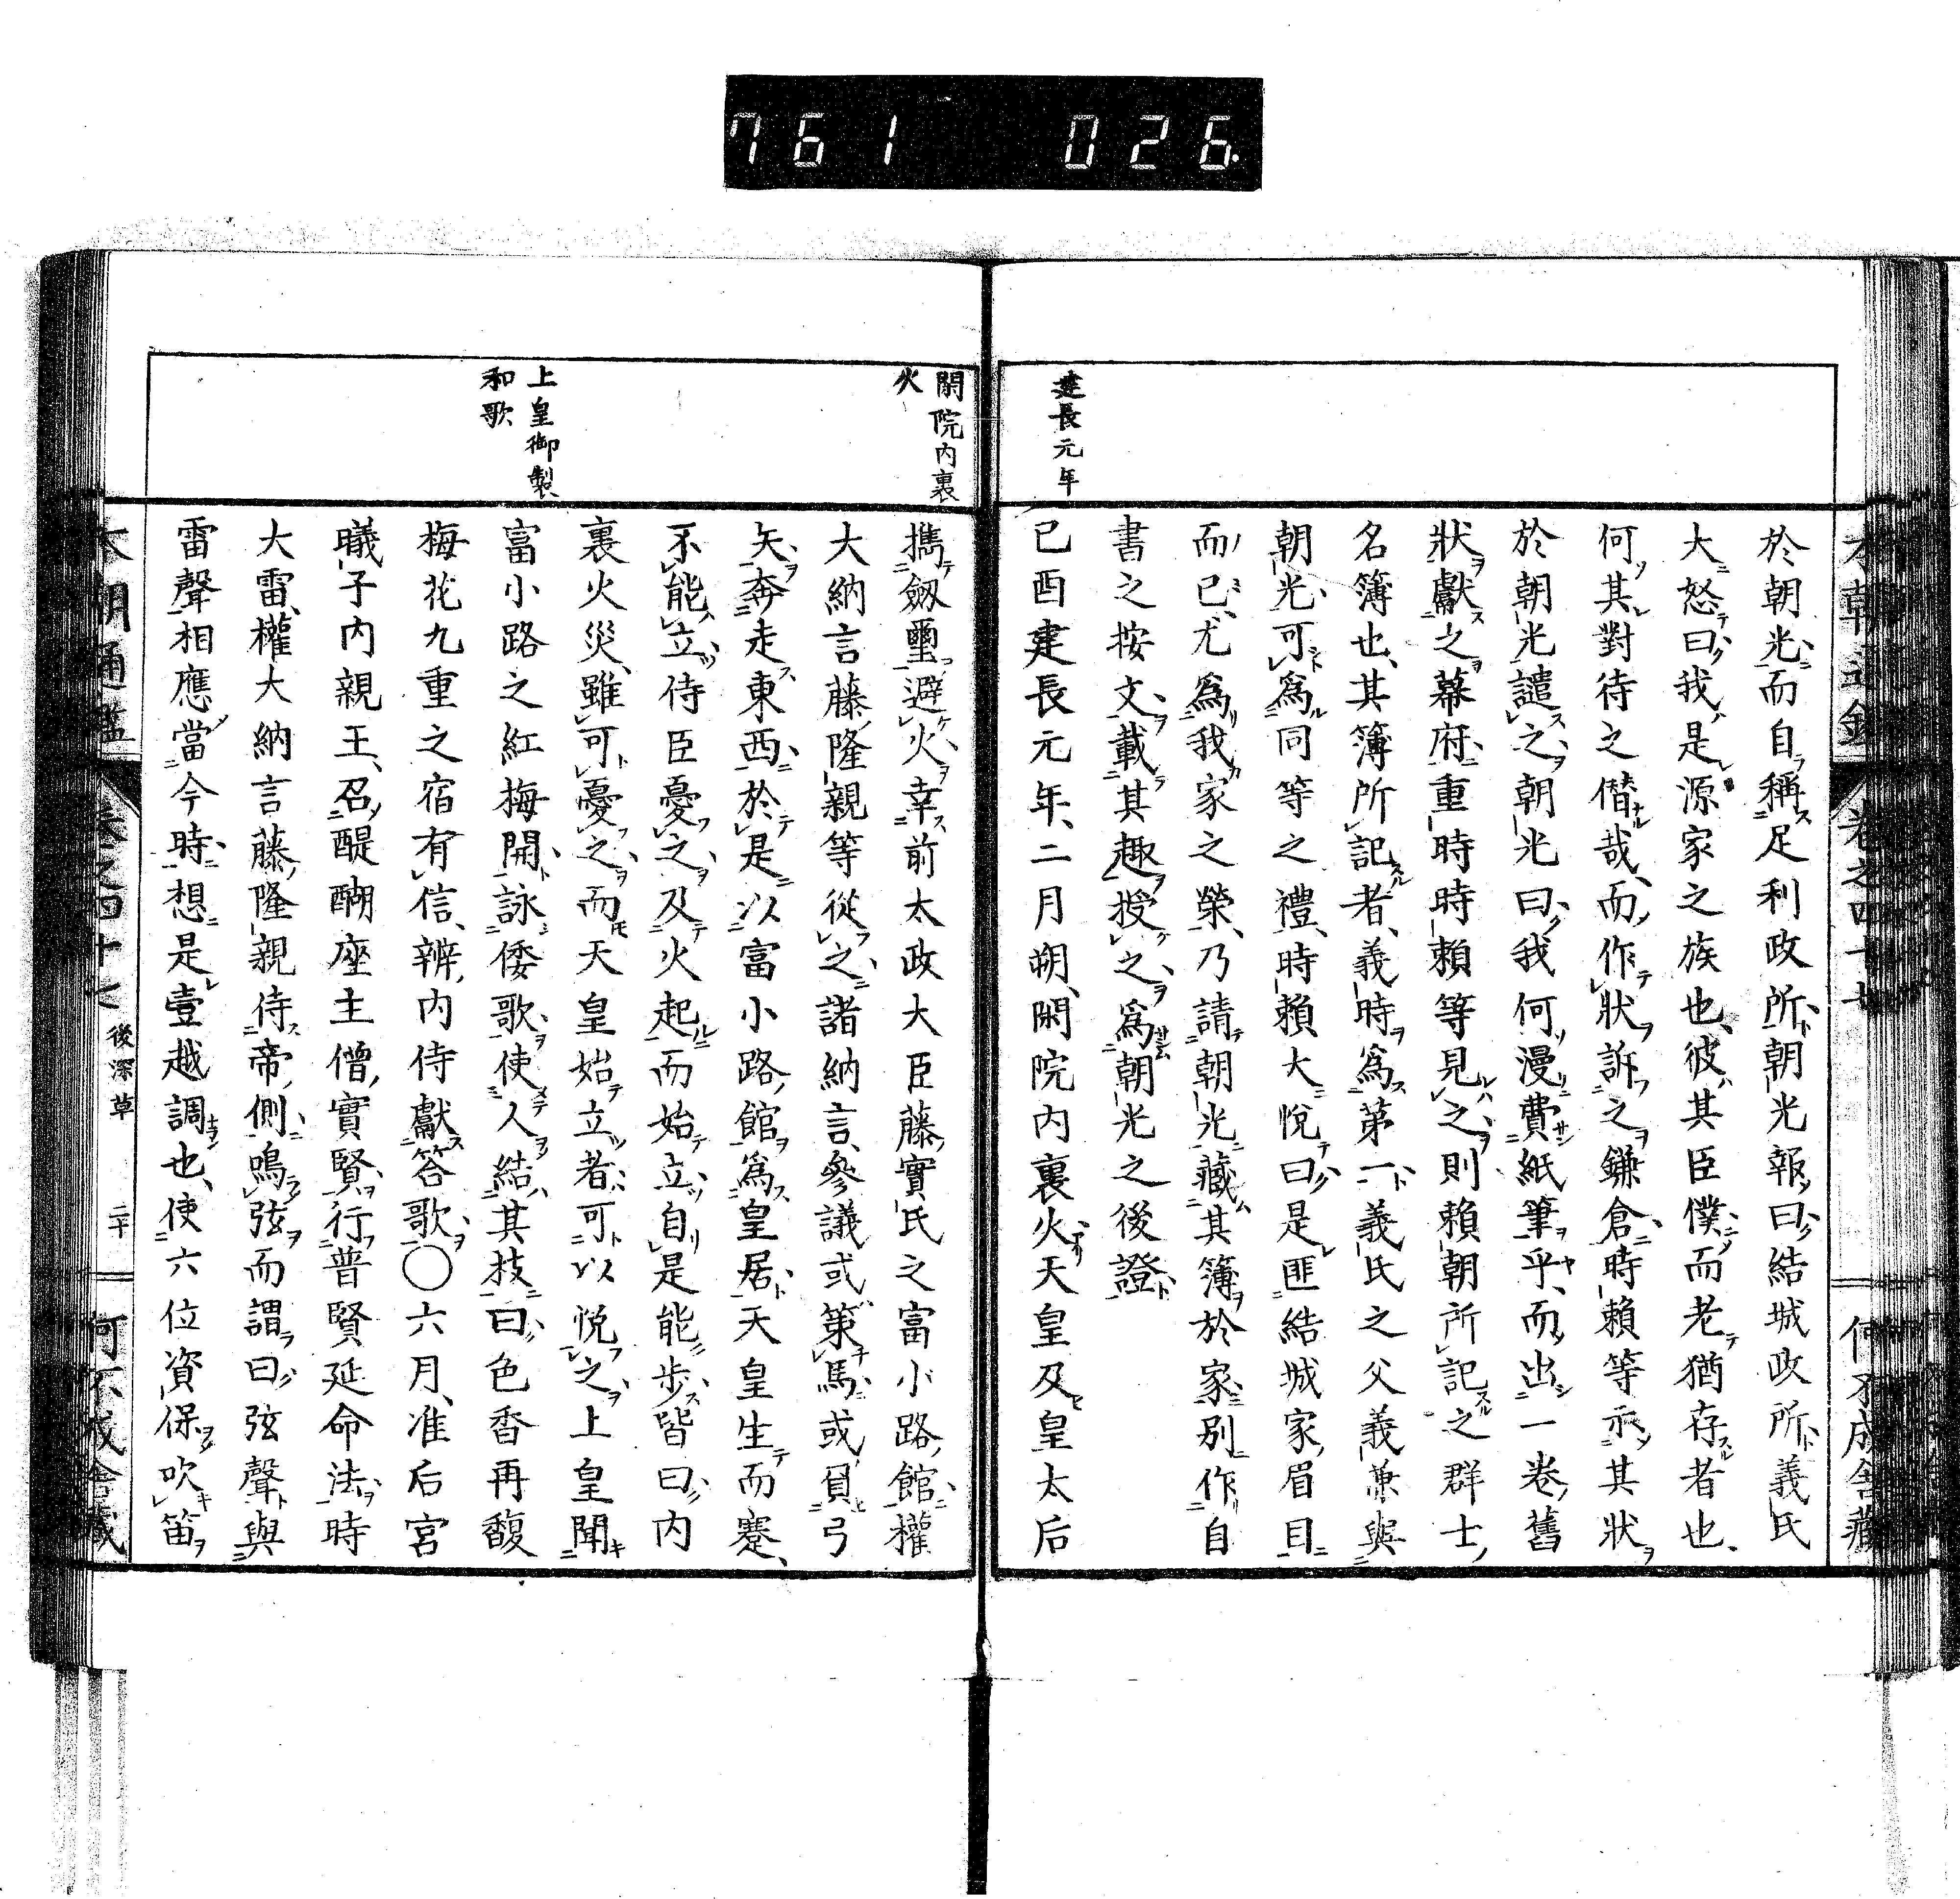 761 026
建長元年
於朝光而自稱足利政所朝光報曰結城政所義氏
大怒曰我是源家之族也彼其臣僕而老猶存者也
何其對待之僭哉而作狀訴之鎌倉時賴等示其狀
於朝光譴之朝光曰我何漫費紙筆乎而出一卷舊
狀獻之幕府重時時賴等見之則賴朝所記之群士
名簿也其簿所記者義時爲第一義氏之父義兼與
朝光可爲同等之禮時賴大悅曰是匪結城家眉目
而已尤爲我家之榮乃請朝光藏其簿於家別作自
書之按文載其趣授之爲朝光之後證
己酉建長元年二月朔閑院內裏火天皇及皇太后
閑院內裏
火
上皇御製
和歌
携劔璽避火幸前太政大臣藤實氏之富小路館權
大納言藤隆親等從之諸納言參議或策馬或負弓
矢奔走東西於是以富小路館爲皇居天皇生而蹇
不能立侍臣憂之及火起而始立自是能步皆曰內
裏火災雖可憂之而天皇始立者可以悅之上皇聞
富小路之紅梅開詠倭歌使人結其枝曰色香再馥
梅花九重之宿有信辨內侍獻答歌〇六月准后宮
曦子內親王召醍醐座主僧實賢行普賢延命法時
大雷權大納言藤隆親侍帝側鳴弦而謂曰弦聲與
雷聲相應當今時想是壹越調也使六位資保吹笛
本朝通鑑 卷之四十七 後深草 二十 何不成舍藏